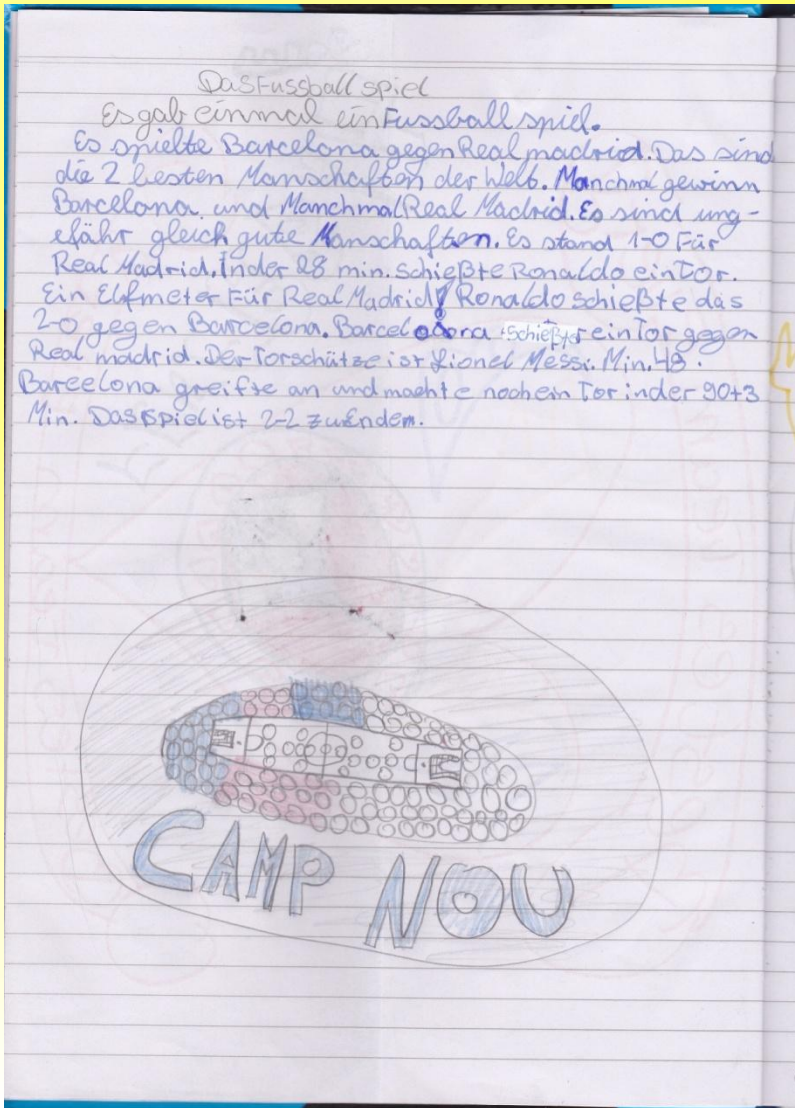 Das Fussballspiel
Es gab einmal ein Fussballspiel.
Es spielte Barcelona gegen Real madrid. Das sind
die 2 besten Manschaften der Welt. Manchmal gewinn
Barcelona und Manchmal Real Madrid. Es sind ung-
efähr gleich gute Manschaften. Es stand 1-0 Für
Real Madrid. In der 28 min. schießte Ronaldo ein Tor.
Ein Elfmeter Für Real Madrid! Ronaldo schießte das
2-0 gegen Barcelona. Barcelona schießte ein Tor gegen
Real madrid. Der Torschütze ist Lionel Messi. Min. 48.
Barcelona greifte an und machte noch ein Tor in der 90+3
Min. Das Spiel ist 2-2 zu Enden.
CAMP NOU